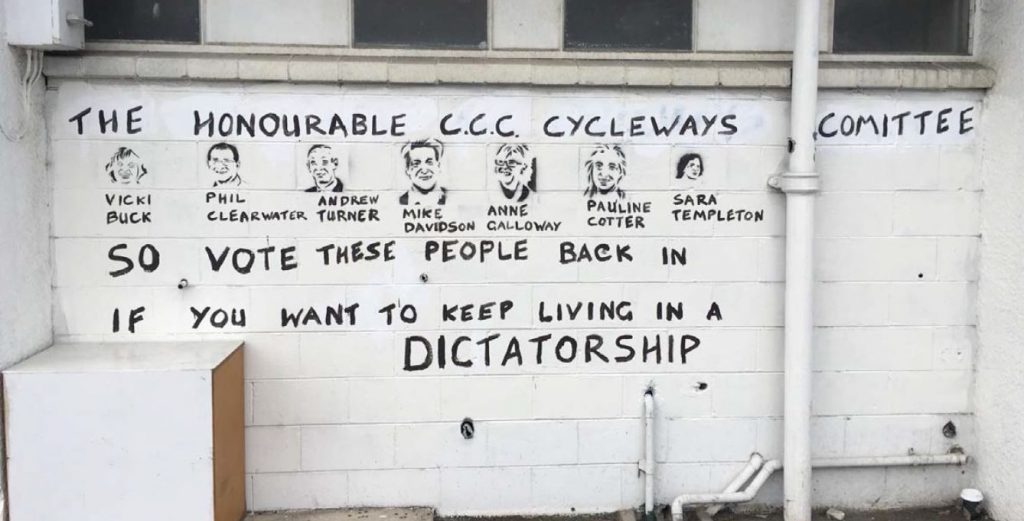 THE HONOURABLE C.C.C. CYCLEWAYS COMITTEE
VICKI BUCK
PHIL CLEARWATER
ANDREW TURNER
MIKE DAVIDSON
ANNE GALLOWAY
PAULINE COTTER
SARA TEMPLETON
SO VOTE THESE PEOPLE BACK IN
IF YOU WANT TO KEEP LIVING IN A
DICTATORSHIP